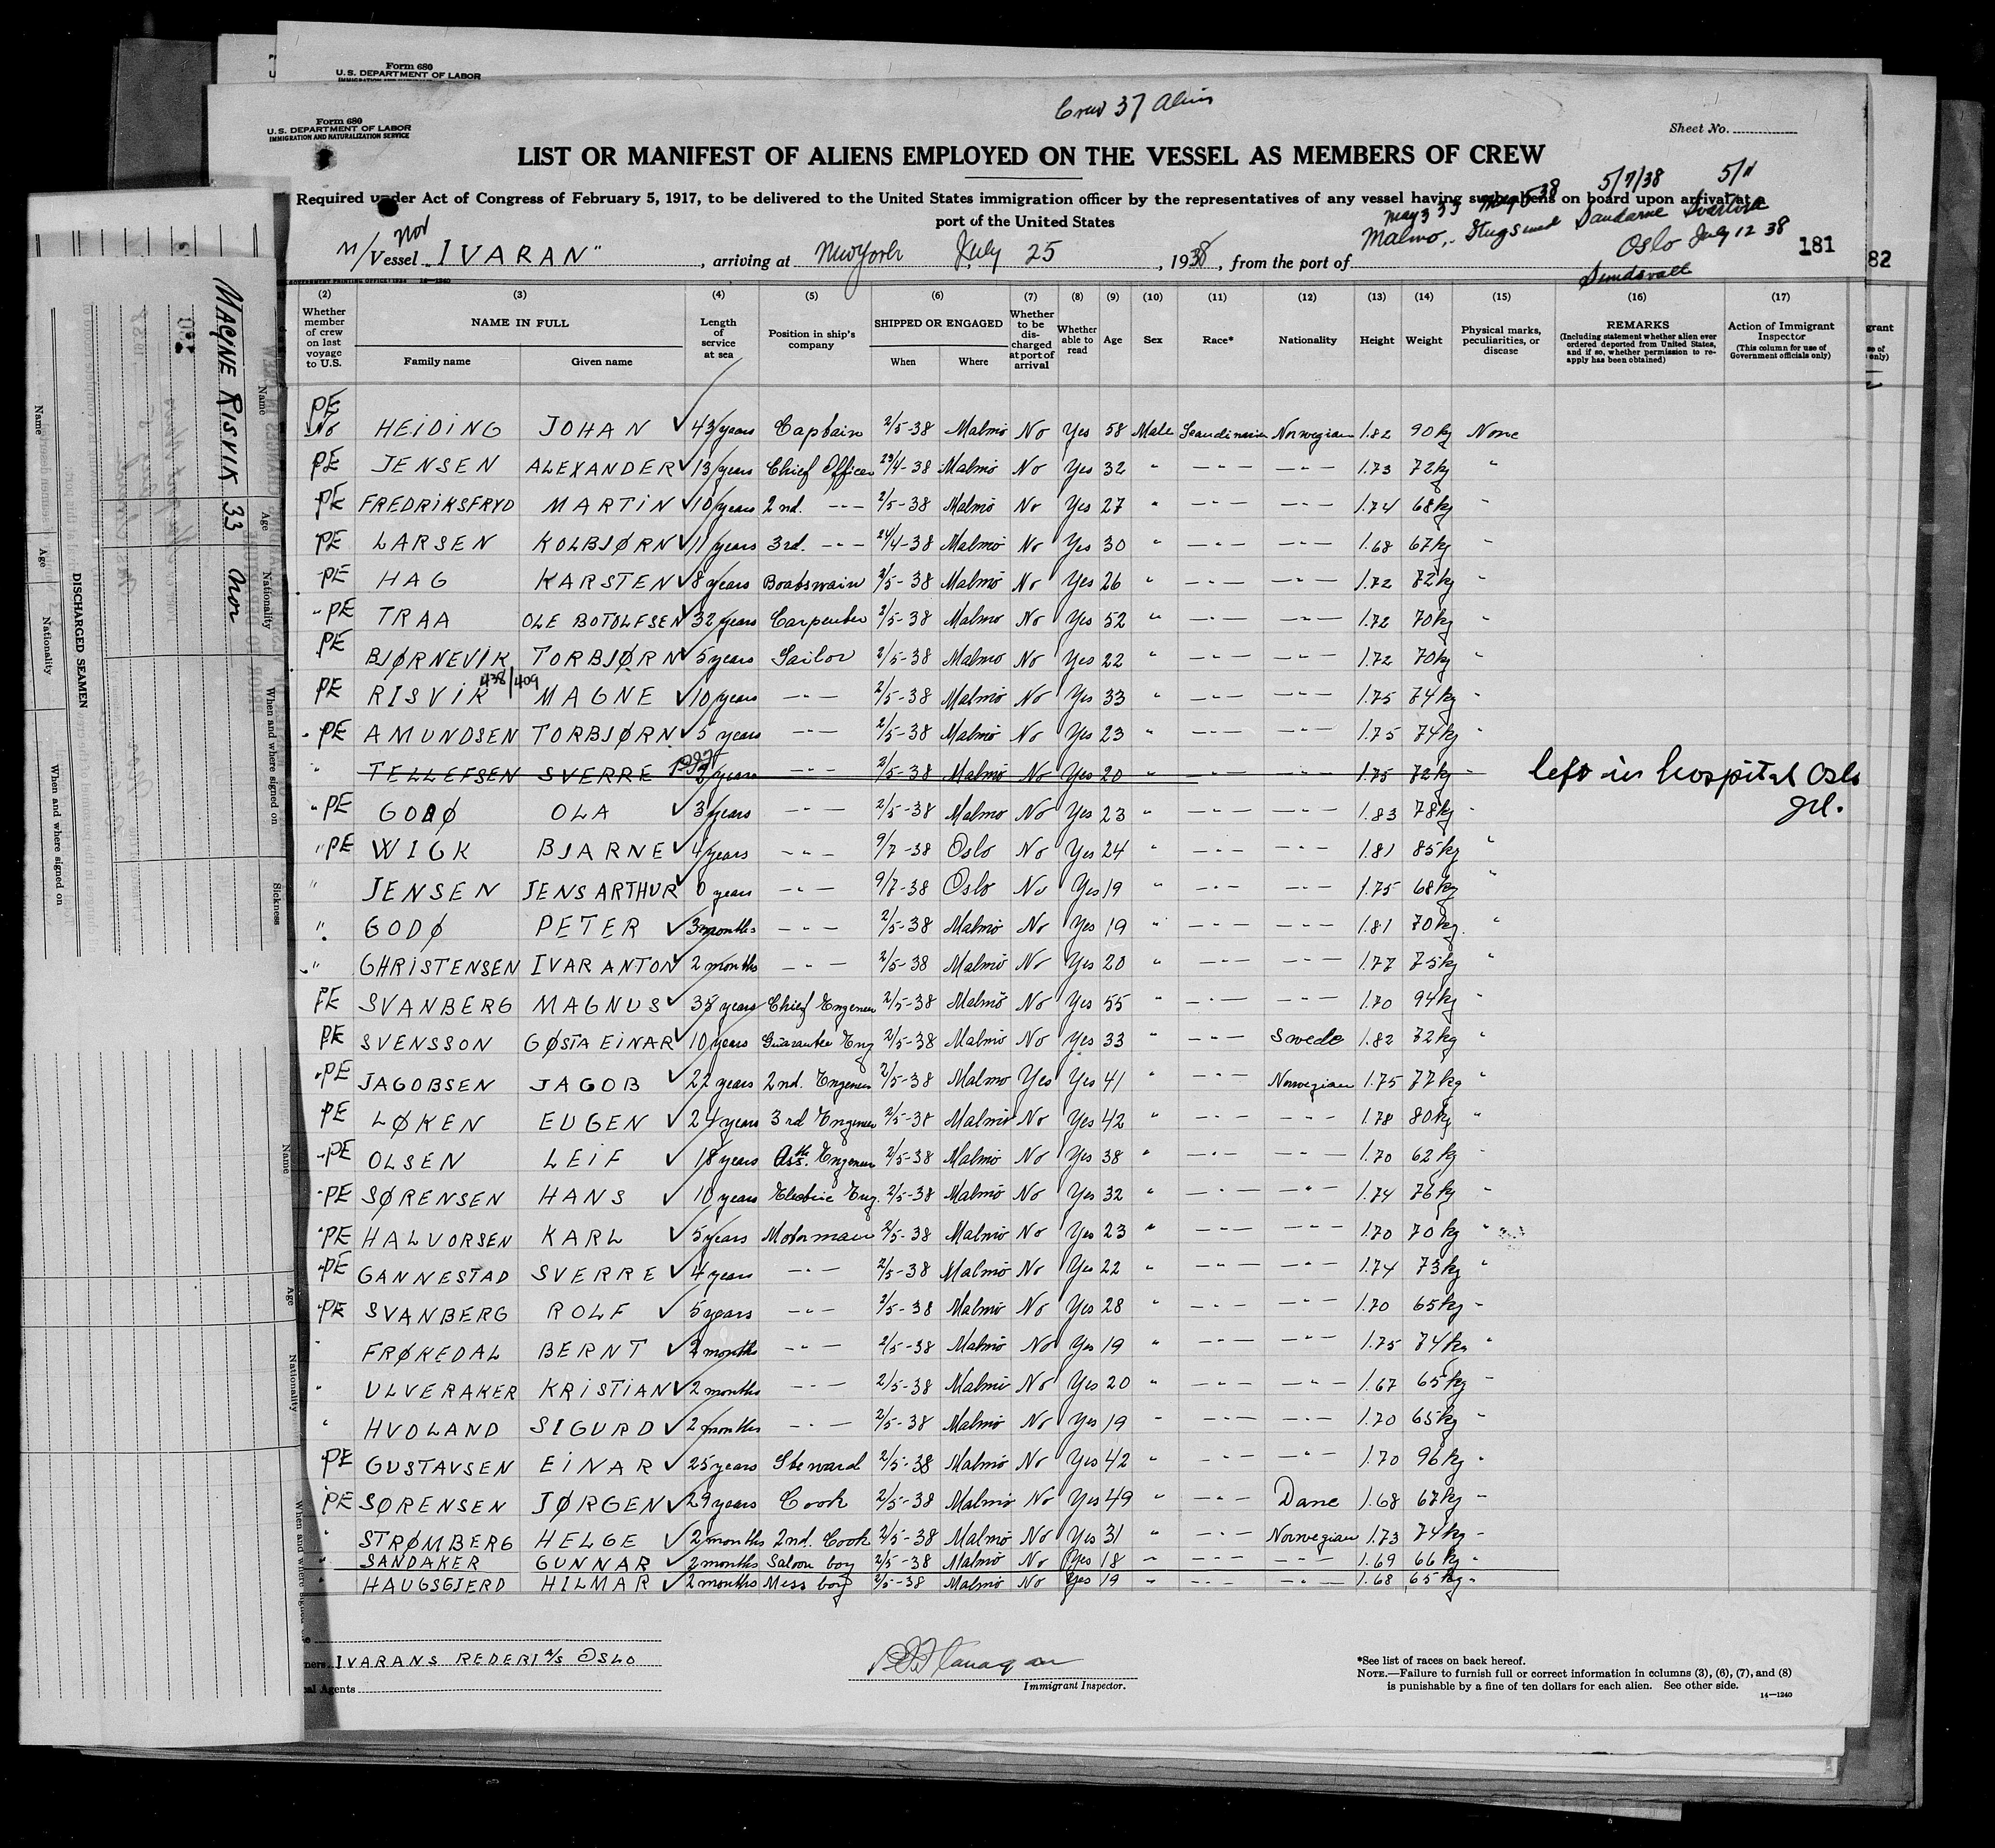 Form 680
U.S. DEPARTMENT OF LABOR
Form 680
U.S. DEPARTMENT OF LABOR
IMMIGRATION AND NATURALIZATION SERVICE
Crew 37 Aliens
Sheet No.
LIST OR MANIFEST OF ALIENS EMPLOYED ON THE VESSEL AS MEMBERS OF CREW
Required under Act of Congress of February 5, 1917, to be delivered to the United States immigration officer by the representatives of any vessel having such aliens on board upon arrival at a
port of the United States
5/7/38 5/11
Malmo, Stugsund Sandarne Svartvik
Oslo July 12 38
Sundsvall
Nor
M/Vessel "IVARAN", arriving at New York July 25, 1938, from the port of
181
82
(2) (3) (4) (5) (6) (7) (8) (9) (10) (11) (12) (13) (14) (15) (16) (17)
Whether member of crew on last voyage to U.S. NAME IN FULL Family name Given name Length of service at sea Position in ship's company SHIPPED OR ENGAGED When Where Whether to be discharged at port of arrival Whether able to read Age Sex Race* Nationality Height Weight Physical marks, peculiarities, or disease REMARKS (Including statement whether alien ever ordered deported from United States, and if so, whether permission to reapply has been obtained) Action of Immigrant Inspector (This column for use of Government officials only)
PE No HEIDING JOHAN ✓ 43 years Captain 2/5-38 Malmö No Yes 58 Male Scandinavian Norwegian 1.82 90kg None
PE JENSEN ALEXANDER ✓ 13 years Chief Officer 29/4-38 Malmö No Yes 32 " -"- -"- 1.73 72kg "
PE FREDRIKSFRYD MARTIN ✓ 10 years 2nd. -"- 2/5-38 Malmö No Yes 27 " -"- -"- 1.74 68kg "
PE LARSEN KOLBJØRN ✓ 11 years 3rd. -"- 24/4-38 Malmö No Yes 30 " -"- -"- 1.68 67kg "
PE HAG KARSTEN ✓ 8 years Boatswain 2/5-38 Malmö No Yes 26 " -"- -"- 1.72 72kg "
" PE TRAA OLE BOTOLFSEN ✓ 32 years Carpenter 2/5-38 Malmö No Yes 52 " -"- -"- 1.72 70kg "
PE BJØRNEVIK TORBJØRN ✓ 5 years Sailor 2/5-38 Malmö No Yes 22 " -"- -"- 1.72 70kg "
438/409
PE RISVIK MAGNE ✓ 10 years -"- 2/5-38 Malmö No Yes 33 " -"- -"- 1.75 74kg "
" PE AMUNDSEN TORBJØRN ✓ 5 years -"- 2/5-38 Malmö No Yes 23 " -"- -"- 1.75 74kg "
" TELLEFSEN SVERRE 2 years -"- 2/5-38 Malmö No Yes 20 " -"- -"- 1.75 72kg " left in hospital Oslo
" PE GODØ OLA ✓ 3 years -"- 2/5-38 Malmö No Yes 23 " -"- -"- 1.83 78kg "
" PE WIGK BJARNE ✓ 4 years -"- 9/7-38 Oslo No Yes 24 " -"- -"- 1.81 85kg "
" JENSEN JENS ARTHUR ✓ 0 years -"- 9/7-38 Oslo No Yes 19 " -"- -"- 1.75 68kg "
" GODØ PETER ✓ 3 months -"- 2/5-38 Malmö No Yes 19 " -"- -"- 1.81 70kg "
" GHRISTENSEN IVAR ANTON ✓ 2 months -"- 2/5-38 Malmö No Yes 20 " -"- -"- 1.77 75kg "
PE SVANBERG MAGNUS ✓ 38 years Chief Engeneer 2/5-38 Malmö No Yes 55 " -"- -"- 1.70 94kg "
PE SVENSSON GØSTA EINAR ✓ 10 years Guarantee Eng 2/5-38 Malmö No Yes 33 " -"- Swede 1.82 72kg "
" PE JAGOBSEN JAGOB ✓ 22 years 2nd. Engeneer 2/5-38 Malmö Yes Yes 41 " -"- Norwegian 1.75 77kg "
PE LØKEN EUGEN ✓ 24 years 3rd Engeneer 2/5-38 Malmö No Yes 42 " -"- -"- 1.78 80kg "
" PE OLSEN LEIF ✓ 18 years Ass. Engeneer 2/5-38 Malmö No Yes 38 " -"- -"- 1.70 62kg "
" PE SØRENSEN HANS ✓ 10 years Electric Eng. 2/5-38 Malmö No Yes 32 " -"- -"- 1.74 76kg "
" PE HALVORSEN KARL ✓ 5 years Motorman 2/5-38 Malmö No Yes 23 " -"- -"- 1.70 70kg "
" PE GANNESTAD SVERRE ✓ 4 years -"- 2/5-38 Malmö No Yes 22 " -"- -"- 1.74 73kg "
" PE SVANBERG ROLF ✓ 5 years -"- 2/5-38 Malmö No Yes 28 " -"- -"- 1.70 65kg "
" FRØKEDAL BERNT ✓ 2 months -"- 2/5-38 Malmö No Yes 19 " -"- -"- 1.75 74kg "
" ULVERAKER KRISTIAN ✓ 2 months -"- 2/5-38 Malmö No Yes 20 " -"- -"- 1.67 65kg "
" HVOLAND SIGURD ✓ 2 months -"- 2/5-38 Malmö No Yes 19 " -"- -"- 1.70 65kg "
PE GUSTAVSEN EINAR ✓ 25 years Steward 2/5-38 Malmö No Yes 42 " -"- -"- 1.70 96kg "
PE SØRENSEN JØRGEN ✓ 29 years Cook 2/5-38 Malmö No Yes 49 " -"- Dane 1.68 67kg "
" STRØMBERG HELGE ✓ 2 months 2nd. Cook 2/5-38 Malmö No Yes 31 " -"- Norwegian 1.73 74kg "
" SANDAKER GUNNAR ✓ 2 months Saloon boy 2/5-38 Malmö No Yes 18 " -"- -"- 1.69 66kg "
" HAUGSGJERD HILMAR ✓ 2 months Mess boy 2/5-38 Malmö No Yes 19 " -"- -"- 1.68 65kg "
IVARANS REDERI A/S OSLO
Agents
Immigrant Inspector.
*See list of races on back hereof.
NOTE.—Failure to furnish full or correct information in columns (3), (6), (7), and (8)
is punishable by a fine of ten dollars for each alien. See other side.
14—1240
MAGNE RISVIK 33 Nor
Name Age Nationality When and where signed on Sickness
DISCHARGED SEAMEN
Name Age Nationality When and where signed on
Name Age Nationality When and where signed